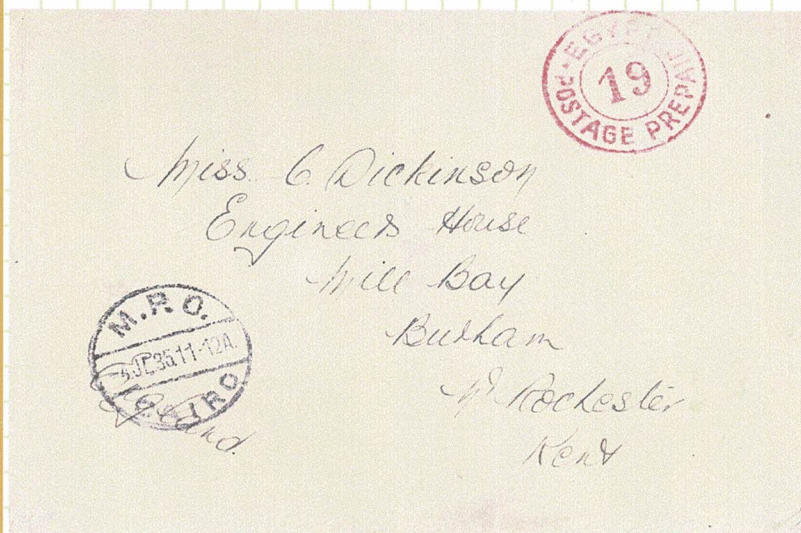 EGYPT
19
POSTAGE PREPAID
Miss C. Dickinson
Engineers House
Mill Bay
Burham
Nr Rochester
Kent
England.
M.P.O.
JE 35.11-12A
CAIRO